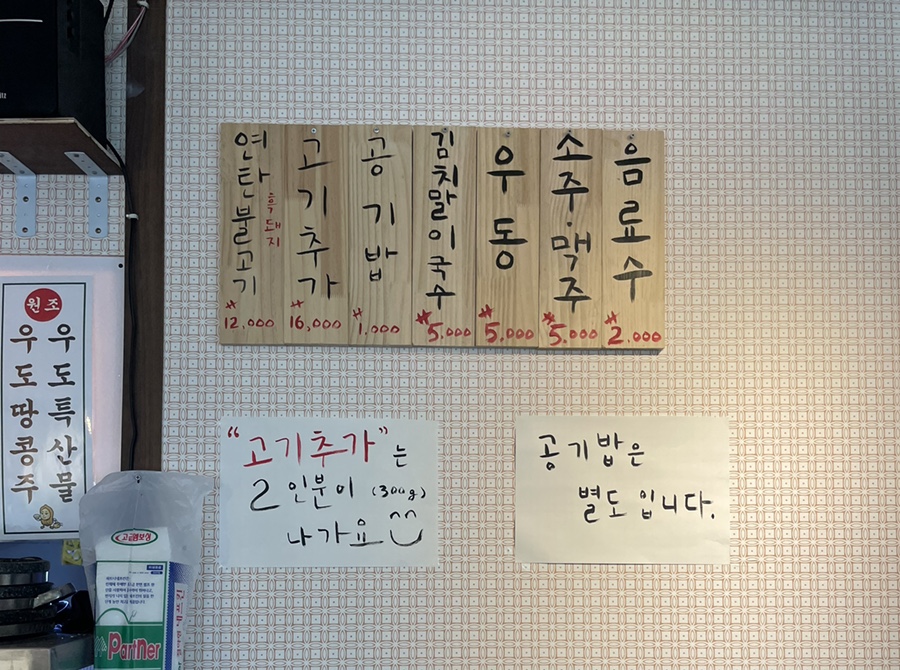 연탄불고기
흑돼지
12,000
고기추가
16,000
공기밥
1,000
김치말이국수
5,000
우동
5,000
소주·맥주
5,000
음료수
2,000
원조
우도특산물
우도땅콩주
"고기추가"는
2인분이 (300g)
나가요
공기밥은
별도입니다.
고급엠보싱
Partner